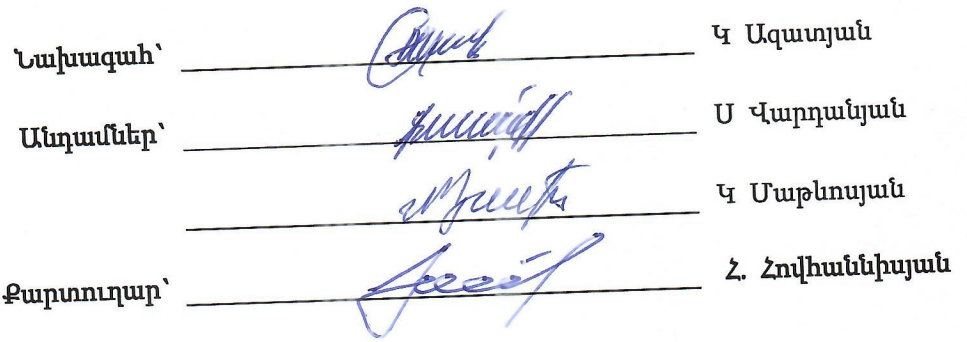 Նախագահ՝ Կ Ազատյան
Անդամներ՝ Ս Վարդանյան
Կ Մաթևոսյան
Քարտուղար՝ Հ. Հովհաննիսյան